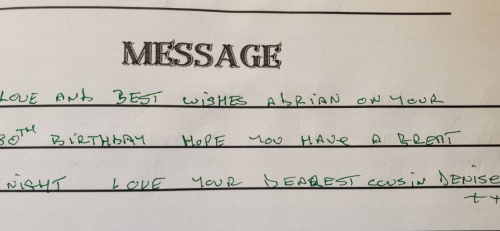 MESSAGE
LOVE AND BEST WISHES ADRIAN ON YOUR
30TH BIRTHDAY HOPE YOU HAVE A GREAT
NIGHT LOVE YOUR DEAREST COUSIN DENISE
++